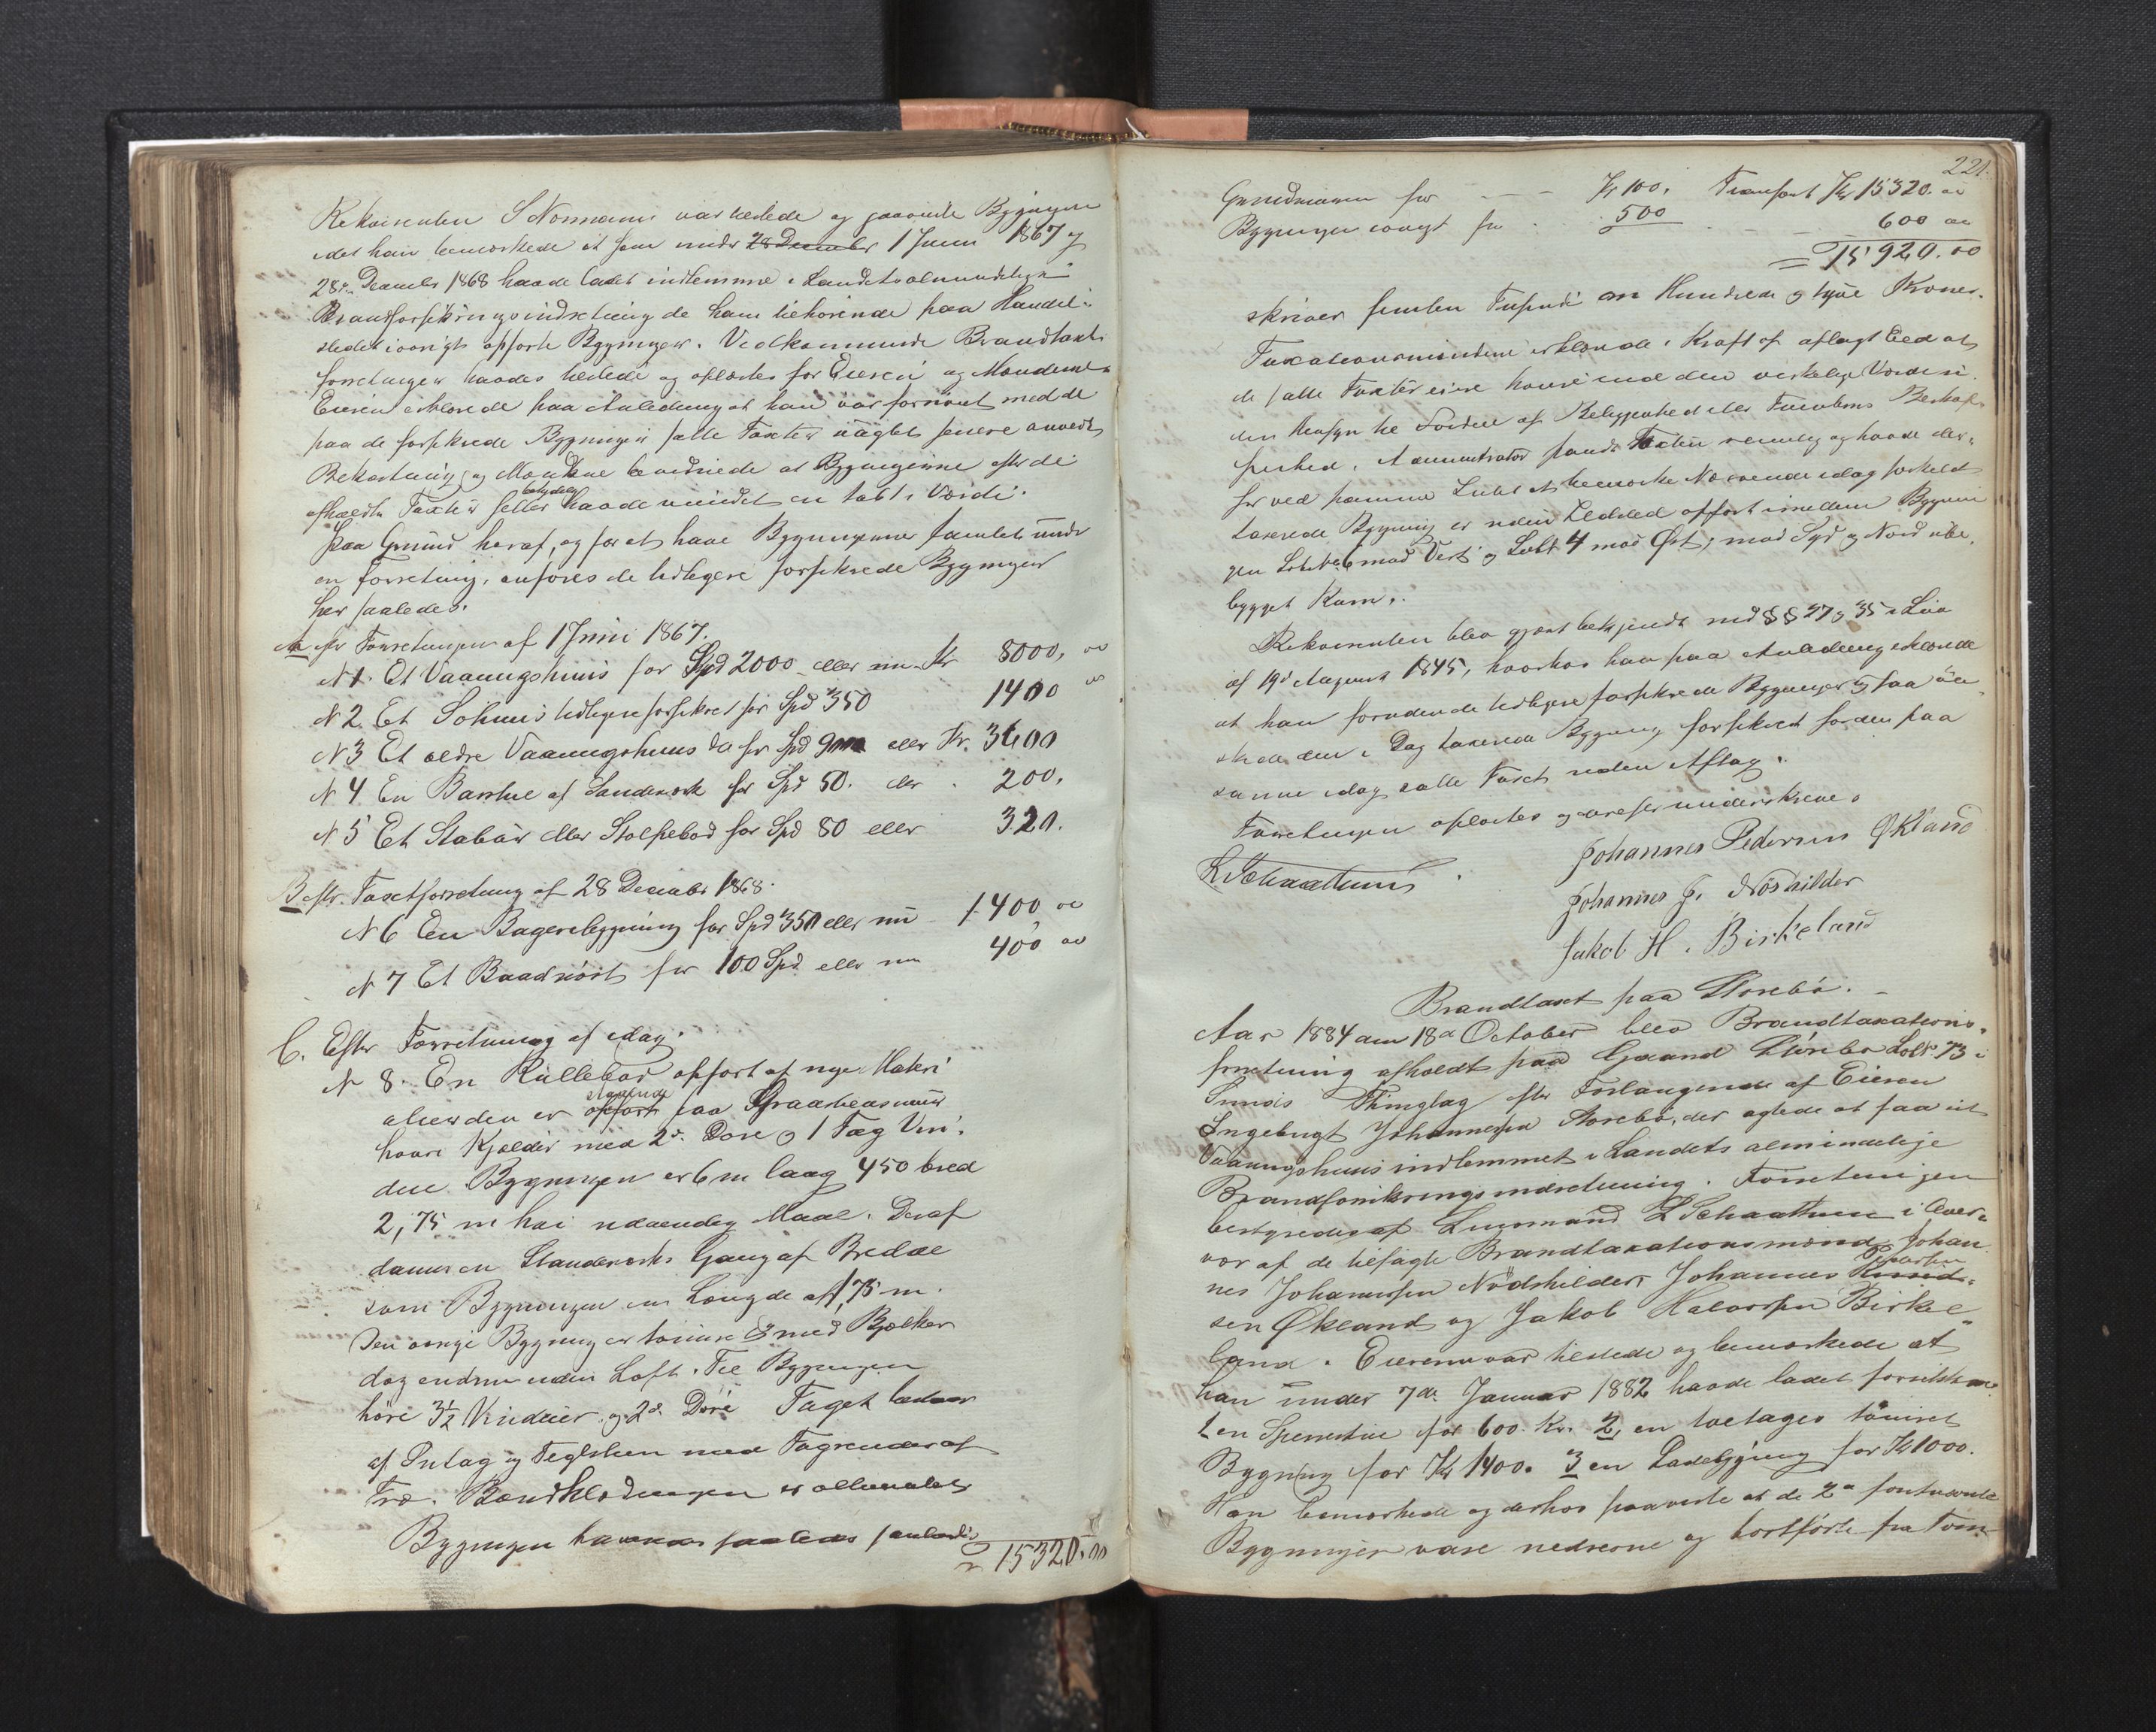 Rekvirenten S Normann var tilstede og paaviste Bygningen
idet han bemærkede at han under 28 December 1 Juni 1867 og
28de December 1868 havde ladet indlemme i Landets almindelige
Brandforsikringsindretning de ham tilhørende paa Handel-
stedet iøvrigt opførte Bygninger. Vedkommende Brandtaxt-
forretninger havdes tilstede og oplæstes for Eieren og Mændene
Eieren erklærede paa Anledning at han var fornøiet med de
paa de forsikrede Bygninger satte Taxter uagtet senere anvendt
Bekostning og Mændene bevidnede at Bygningerne efter de
afholdte Taxter heller havde vundet en tabt i Værdi.
betydelig
Paa Grund heraf, og for at have Bygningerne samlet under
en Forretning, anføres de tidligere forsikrede Bygninger
her saaledes.
A efter Forretningen af 1 Juni 1867.
N 1. Et Vaaningshuus for Spd 2000 eller nu Kr 8000, 00
N 2. Et Søhuus tidligere forsikret for Spd 350 1400 00
N 3 Et ældre Vaaningshuus do for Spd 900 eller Kr. 3600
N 4 En Barstue af Standværk for Spd 50. eller 200,
N 5 Et Stabur eller Stolpebod for Spd 80 eller 320.
B eftr. Taxtforretning af 28 December 1868.
N 6 En Bageribygning for Spd 350 eller nu 1400 00
N 7 Et Baadnøst for 100 Spd eller nu 400 00
C. Efter Forretning af idag.
N 8. En Rullebod opført af nye Materi
staaende
alier den er opført paa Graasteensmuur
hvori Kjælder med 2de Døre og 1 Fag Vin-
due Bygningen er 6 m lang 450 bred
2,75 m høi udvendig Maal. Deraf
danner en Standværks Gang af Bredde
som Bygningen en Længde af 1,75 m.
Den øvrige Bygning er tømret med Bjælker
dog endnu uden Loft. Til Bygningen
høre 3½ Vinduer og 2de Døre Taget bestaar
af Undtag og Teglsteen med Tagrender af
Træ. Bordklædningen er oliemalet
Bygningen
15320.00
221.
Grundmuren for - - Kr 100, Transport Kr 15320. 00
Bygningen iøvrigt for . . 500 - - 600 00
= 15920.00
skriver femten Tusinde ni Hundrede og tyve Kroner.
Taxationsmændene erklærede i Kraft af aflagt Eed at
de satte Taxter ei ere høiere end den virkelige Værdi
uden Hensyn til Fordeel af Beliggenhed eller Tomtens Beskaf-
fenhed. Administrator fandt Taxten rimelig og havde der-
for ved samme Intet at bemærke Nærværende idag forholdt
taxerede Bygning er uden Ildsted opført imellem Bygnin
gen Litr No 6 mod Vest og Litr 4 mod Øst, mod Syd og Nord ube-
bygget Rum.
Rekvirenten blev gjort bekjendt med §§ 27 og 35 i Lov
af 19de August 1845, hvorhos han paa Anledning erklærede
at han foruden de tidligere forsikrede Bygninger og saa øn-
skede den i Dag taxerede Bygning forsikret for den paa
samme idag satte Taxt uden Aftag.
Forretningen oplæstes og derefter underskreves
L Schaathun. Johannes Pedersen Økland
Johannes J. Nøshilder
Jakob H. Birkeland
Brandtaxt paa Storebø.
Aar 1884 den 18de October blev Brandtaxations-
forretning afholdt paa Gaard Storebø LobN 73 i
Sunds Thinglag efter Forlangende af Eieren
Ingebrigt Johannessen Storebø, der agtede at faa sit
Vaaningshuus indlemmet i Landets almindelige
Brandforsikringsindretning. Forretningen
bestyredes af Lensmand L Schaathun i Over-
vær af de tilsagte Brandtaxationsmænd Johan
Pedersen
nes Johannessen Nødshilder, Johannes Knud-
sen Økland og Jakob Halvorsen Birke-
land. Eieren var tilstede og bemærkede at
han under 7de Januar 1882 havde ladet forsikkre
1 en Sperrestue for 600 Kr. 2, en toetages tømret
Bygning for Kr 1400. 3 en Ladebygning for Kr 1000.
Han bemærkede og derhos paaviste at de 2de førstnævnte
Bygninger vare nedrevne og bortførte fra Tom